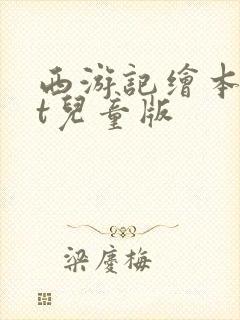 西游記繪本
t兒童版
梁慶梅